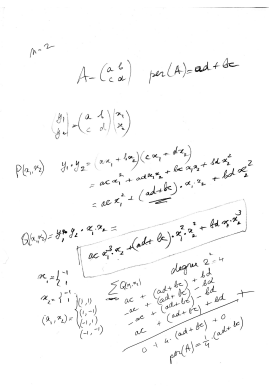 n=2
A = (a b
c d) per(A) = ad + bc
(y₁
y₂) = (a b
c d) (x₁
x₂)
P(x₁,x₂) y₁·y₂ = (ax₁ + bx₂)(cx₁ + dx₂)
= acx₁² + adx₁x₂ + bcx₁x₂ + bdx₂²
= acx₁² + (ad+bc)·x₁x₂ + bdx₂²
Q(x₁,x₂) = y₁y₂·x₁x₂ =
acx₁³x₂ + (ad+bc)·x₁²x₂² + bdx₁x₂³
degree 2·2=4
x₁ = { 1, -1
x₂ = { 1, -1
∑Q(x₁,x₂)
(x₁,x₂) = (1,1)
(1,-1)
(-1,1)
(-1,-1)
ac + (ad+bc) + bd
-ac + (ad+bc) - bd
-ac + (ad+bc) - bd
ac + (ad+bc) + bd +
0 + 4·(ad+bc) + 0
per(A) = 1/4 (ad+bc)